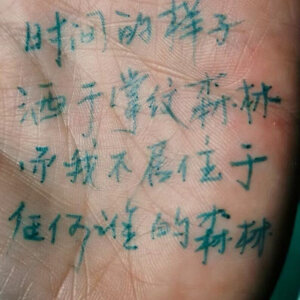 时间的样子
洒于掌纹森林
而我不居住于
任何谁的森林